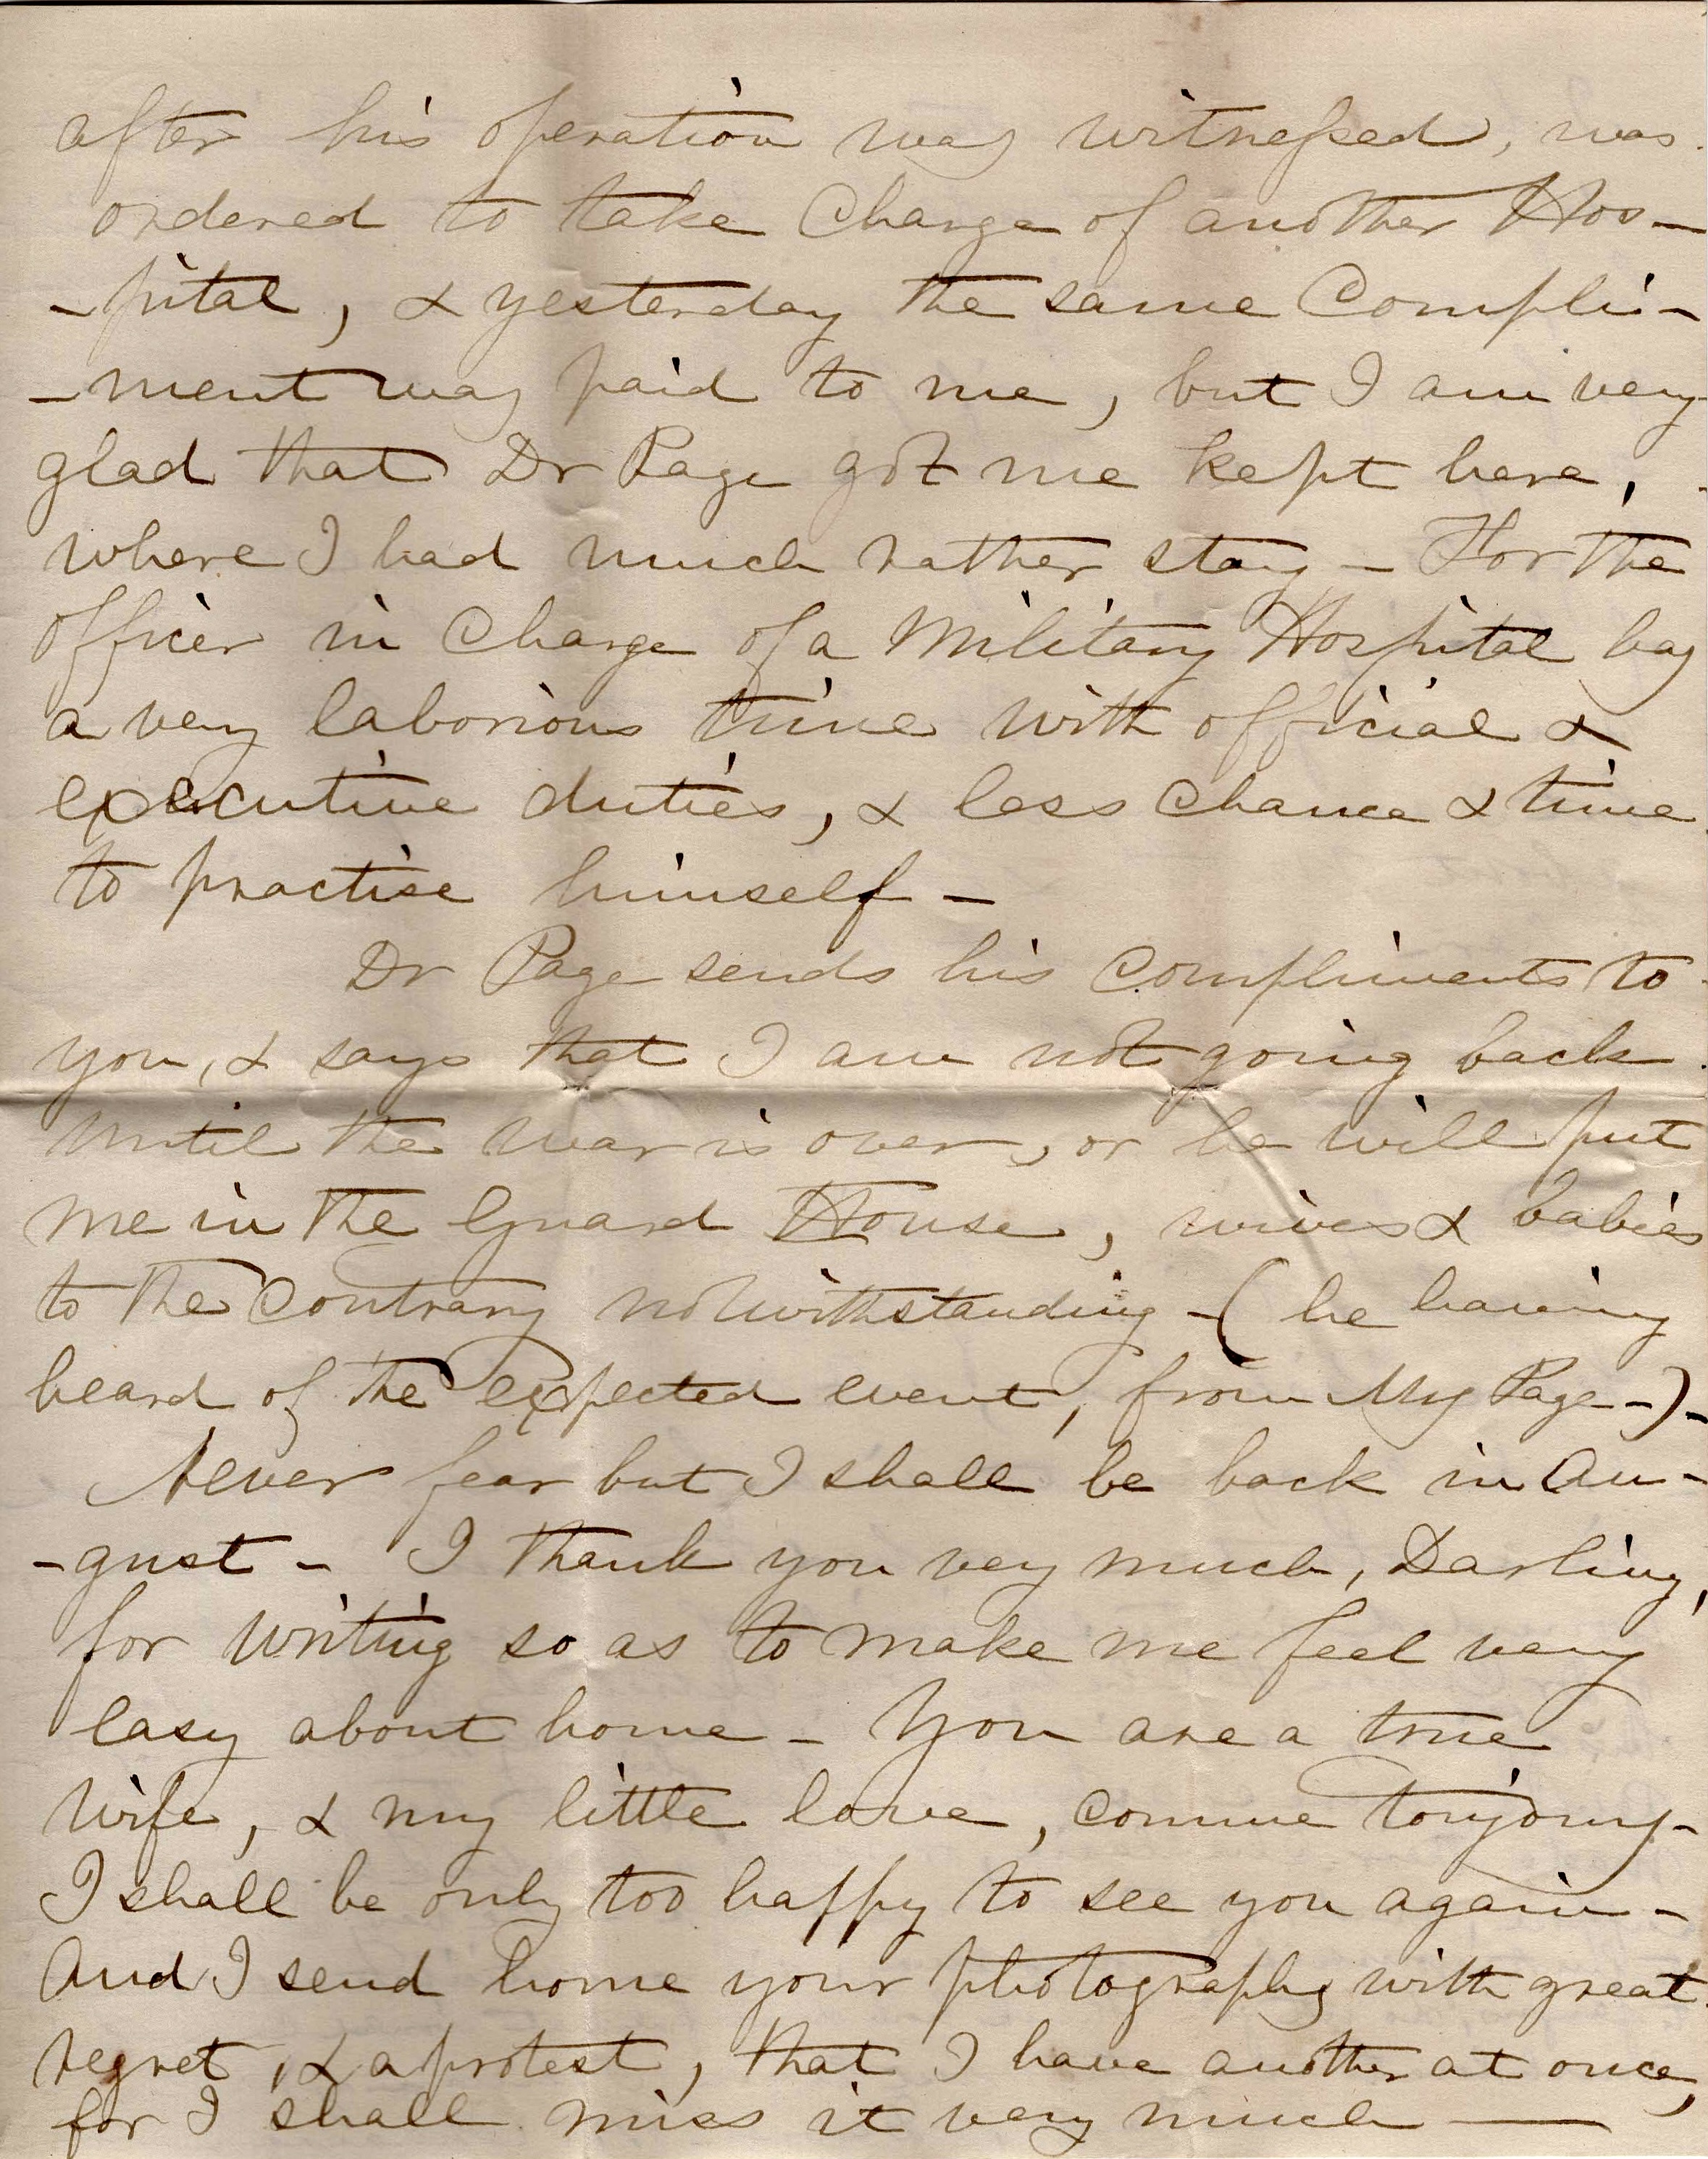 after his operation was witnessed, was
ordered to take Charge of another Hos-
-pital, & yesterday the same Compli-
-ment was paid to me, but I am very
glad that Dr Page got me kept here,
where I had much rather stay - For the
officer in Charge of a Military Hospital has
a very laborious time with official &
executive duties, & less chance & time
to practise himself -
Dr Page sends his Compliments to
you, & says that I am not going back
until the war is over, or he will put
me in the Guard House, wives & babies
to the Contrary notwithstanding - (he having
heard of the expected event, from My Page -) -
Never fear but I shall be back in Au-
-gust - I thank you very much, Darling,
for writing so as to make me feel very
easy about home - You are a true
wife, & my little love, comme toujours -
I shall be only too happy to see you again -
And I send home your photographs with great
regret, & a protest, that I have another at once,
for I shall miss it very much —